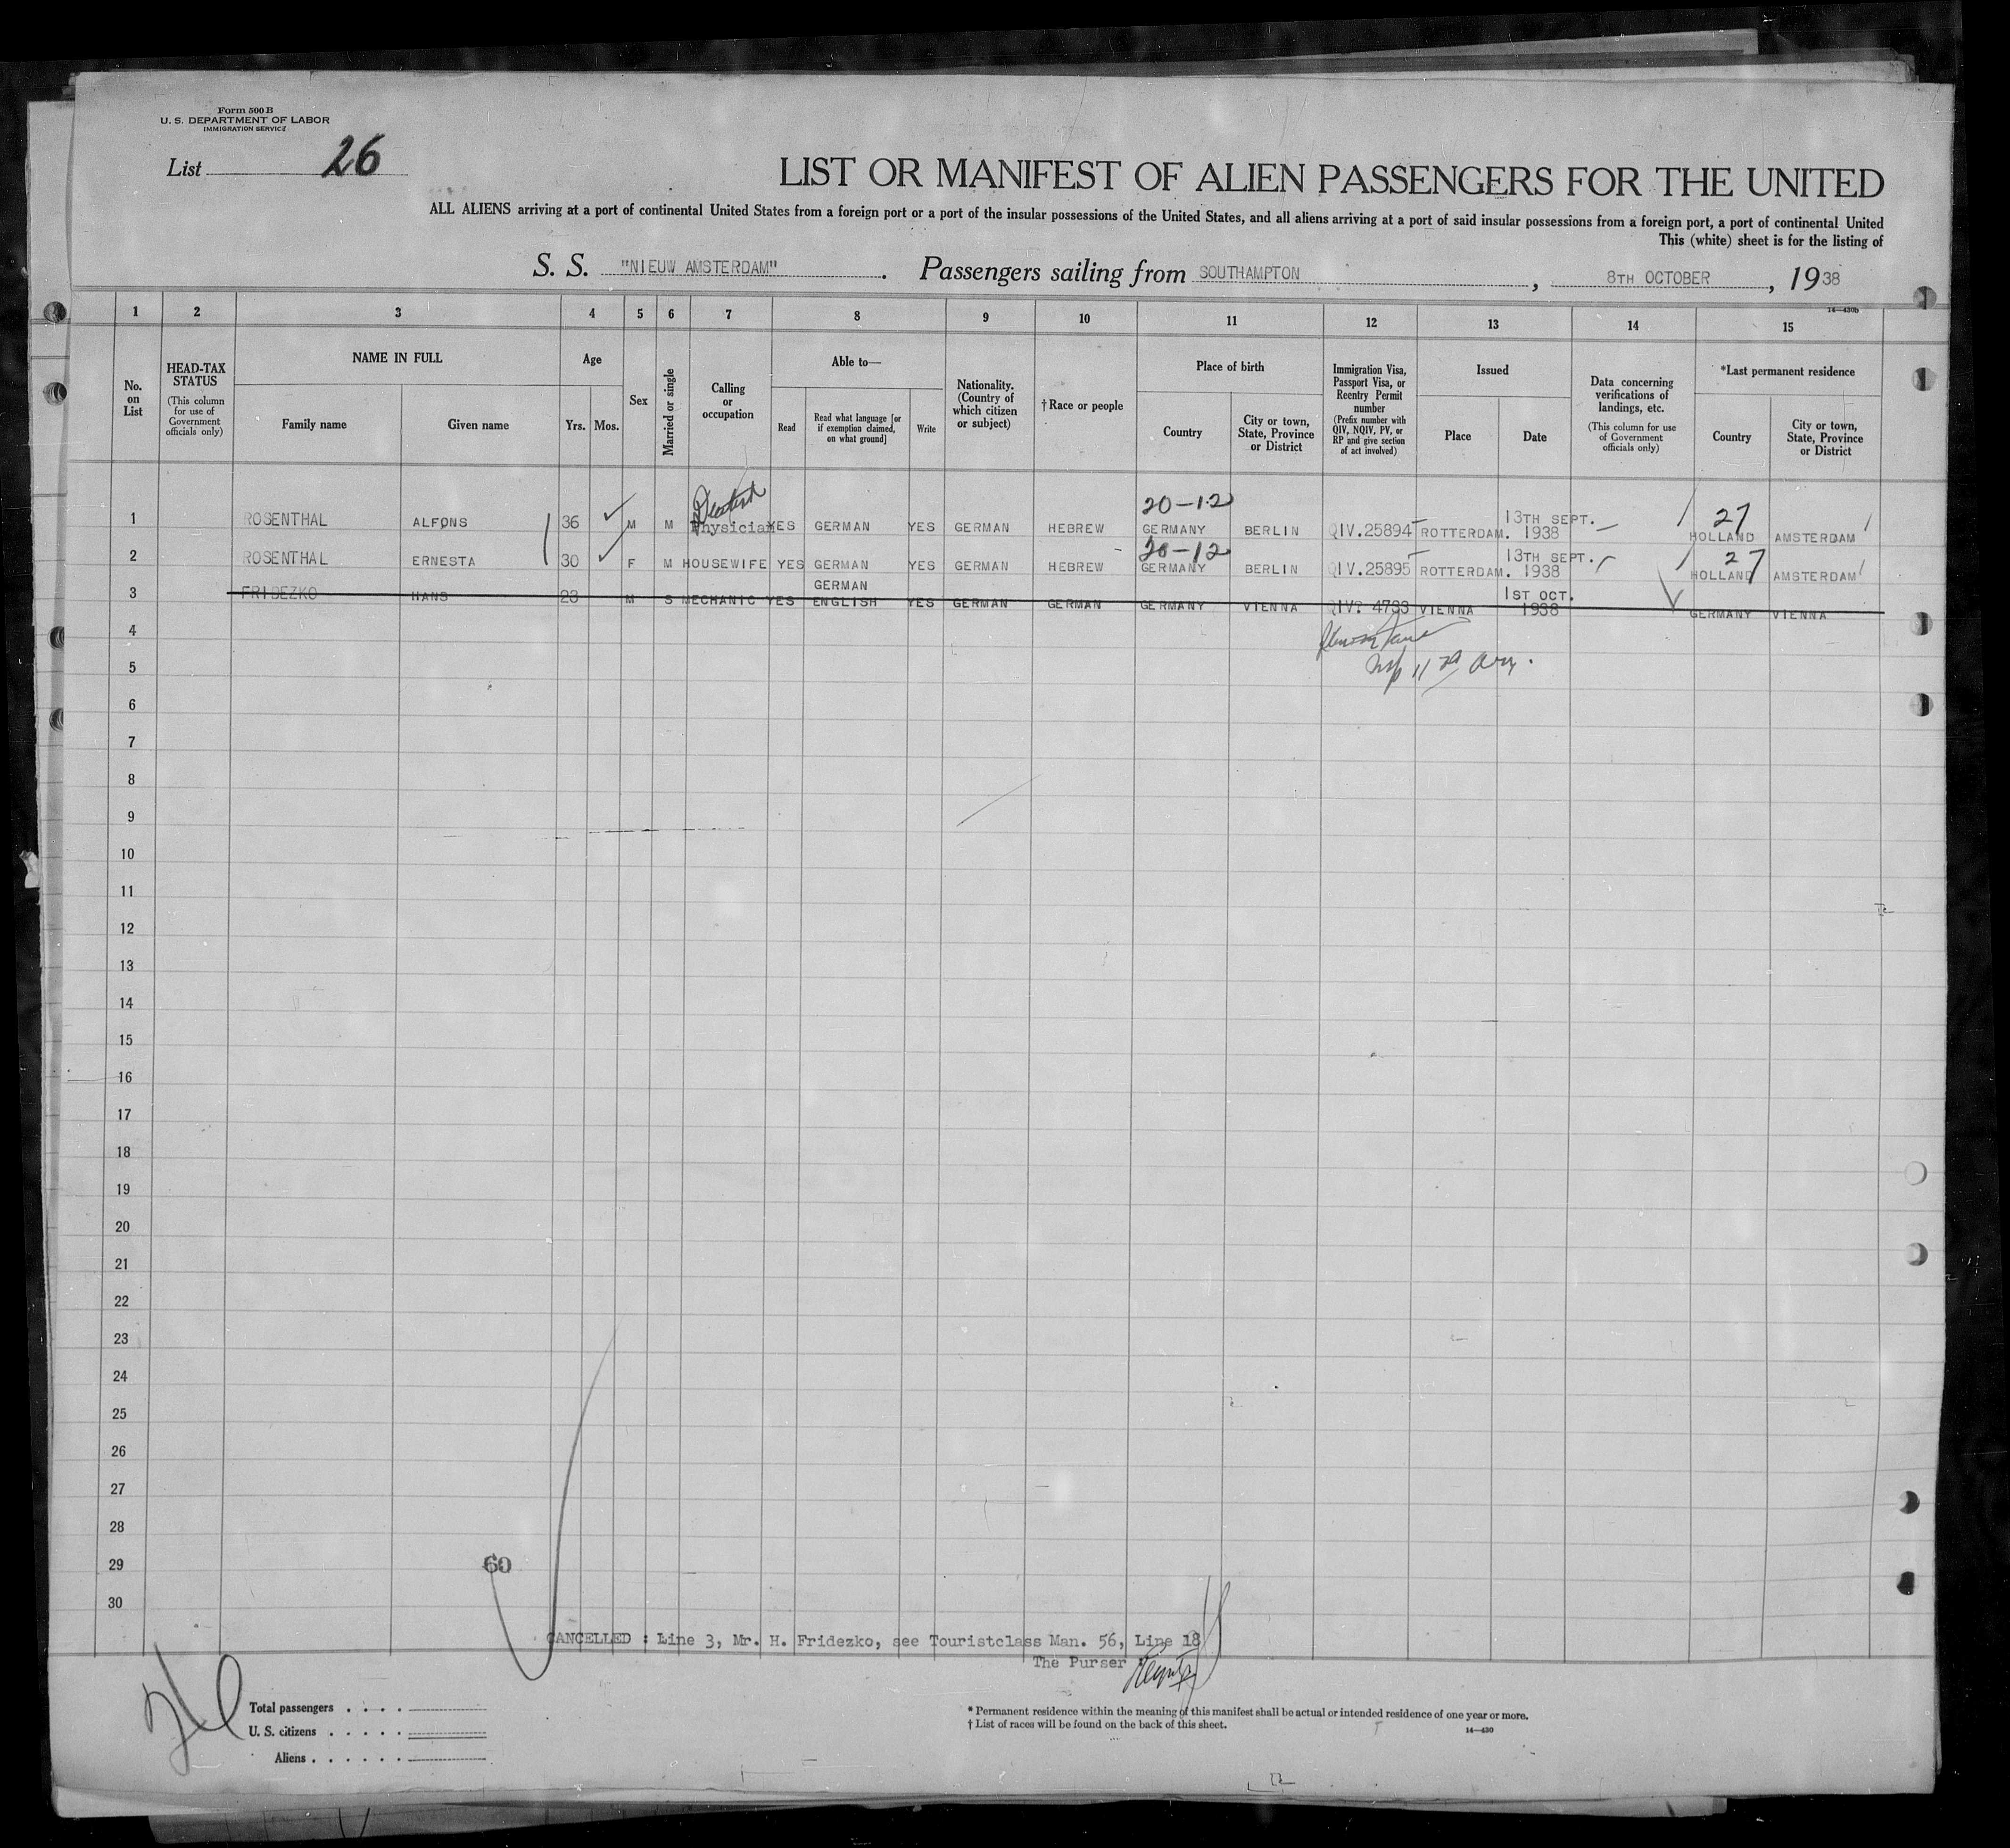 Form 500 B
U. S. DEPARTMENT OF LABOR
IMMIGRATION SERVICE
List 26
LIST OR MANIFEST OF ALIEN PASSENGERS FOR THE UNITED
ALL ALIENS arriving at a port of continental United States from a foreign port or a port of the insular possessions of the United States, and all aliens arriving at a port of said insular possessions from a foreign port, a port of continental United
This (white) sheet is for the listing of
S. S. "NIEUW AMSTERDAM". Passengers sailing from SOUTHAMPTON, 8TH OCTOBER, 1938
14—430b
1 2 3 4 5 6 7 8 9 10 11 12 13 14 15
No. on List
HEAD-TAX STATUS (This column for use of Government officials only)
NAME IN FULL
Family name
Given name
Age
Yrs. Mos.
Sex
Married or single
Calling or occupation
Able to—
Read
Read what language [or if exemption claimed, on what ground]
Write
Nationality. (Country of which citizen or subject)
†Race or people
Place of birth
Country
City or town, State, Province or District
Immigration Visa, Passport Visa, or Reentry Permit number (Prefix number with QIV, NQIV, PV, or RP and give section of act involved)
Issued
Place
Date
Data concerning verifications of landings, etc. (This column for use of Government officials only)
*Last permanent residence
Country
City or town, State, Province or District
Dentist 20-12
1 ROSENTHAL ALFONS 36 M M Physician YES GERMAN YES GERMAN HEBREW GERMANY BERLIN QIV.25894 ROTTERDAM. 13TH SEPT. 1938 27 HOLLAND AMSTERDAM
20-12
2 ROSENTHAL ERNESTA 30 F M HOUSEWIFE YES GERMAN YES GERMAN HEBREW GERMANY BERLIN QIV.25895 ROTTERDAM. 13TH SEPT. 1938 27 HOLLAND AMSTERDAM
3 FRIDEZKO HANS 23 M S MECHANIC YES GERMAN ENGLISH YES GERMAN GERMAN GERMANY VIENNA QIV. 4733 VIENNA 1ST OCT. 1938 GERMANY VIENNA
4
5
6
7
8
9
10
11
12
13
14
15
16
17
18
19
20
21
22
23
24
25
26
27
28
29
60
30
CANCELLED : Line 3, Mr. H. Fridezko, see Touristclass Man. 56, Line 18
The Purser
Total passengers
U. S. citizens
Aliens
* Permanent residence within the meaning of this manifest shall be actual or intended residence of one year or more.
† List of races will be found on the back of this sheet.
14—430